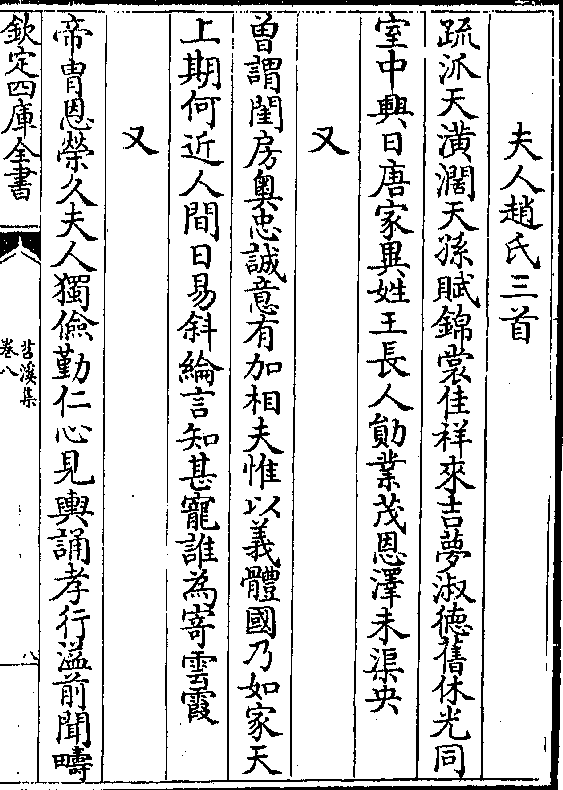 夫人趙氏三首
疏派天潢濶天孫賦錦裳佳祥來吉夢淑德舊休光同
室中興日唐家異姓王長人勛業茂恩澤未渠央
又
曾謂閨房奥忠誠意有加相夫惟以義體國乃如家天
上期何近人間日易斜綸言知甚寵誰為寄雲霞
又
帝胄恩榮久夫人獨儉勤仁心見輿誦孝行溢前聞疇
欽定四庫全書
苕溪集
卷八
八